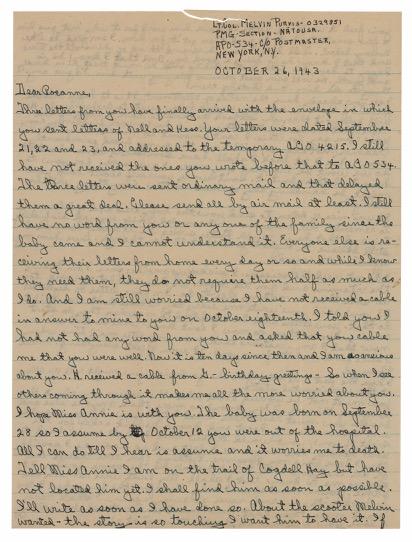 LT. COL. MELVIN PURVIS - 0329851
PMG-SECTION - NATOUSA.
APO-534-C/O POSTMASTER,
NEW YORK, N.Y.
OCTOBER 26, 1943
Dear Roseanne,
Three letters from you have finally arrived with the envelope in which
you sent letters of Nell and Kess. Your letters were dated September
21, 22 and 23, and addressed to the temporary A.P.O. 4215. I still
have not received the ones you wrote before that to A.P.O 534.
The three letters were sent ordinary mail and that delayed
them a great deal. Please send all by air mail at least. I still
have no word from you or any one of the family since the
baby came and I cannot understand it. Everyone else is re-
ceiving their letters from home every day or so and while I know
they need them, they do not require them half as much as
I do. And I am still worried because I have not received a cable
in answer to mine to you on October eighteenth. I told you I
had not had any word from you and asked that you cable
me that you were well. Now it is ten days since then and I am
about you. received a cable from G.- birthday greetings - So when I see
others coming through it makes me all the more worried about you.
I hope Miss Annie is with you. The baby was born on September
28 so I assume by October 12 you were out of the hospital.
All I can do till I hear is assume and it worries me to death.
Tell Miss Annie I am on the trail of Cogdell Hay but have
not located him yet. I shall find him as soon as possible.
I'll write as soon as I have done so. About the scooter Melvin
wanted - the story is so touching I want him to have it. If